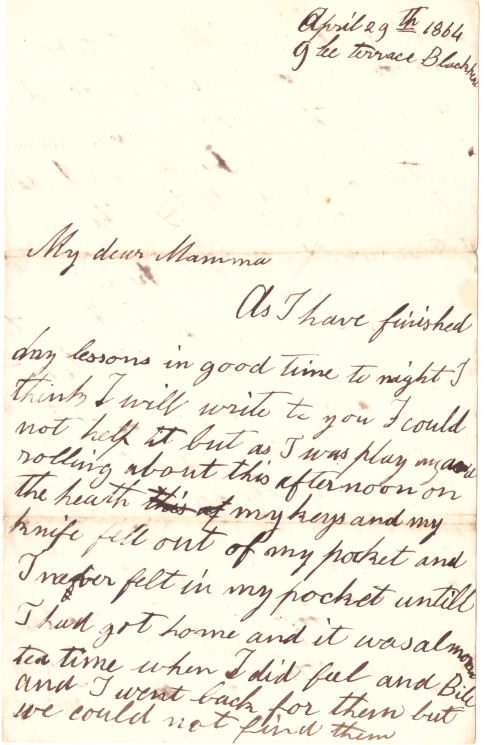 April 29th 1864
9 Lee terrace Blackhea
My dear Mamma
As I have finished
my lessons in good time to night I
think I will write to you I could
not help it but as I was playing and
rolling about this afternoon on
the heath this af my keys and my
knife fell out of my pocket and
I never felt in my pocket untill
I had got home and it was almost
tea time when I did feel and Bill
and I went back for them but
we could not find them